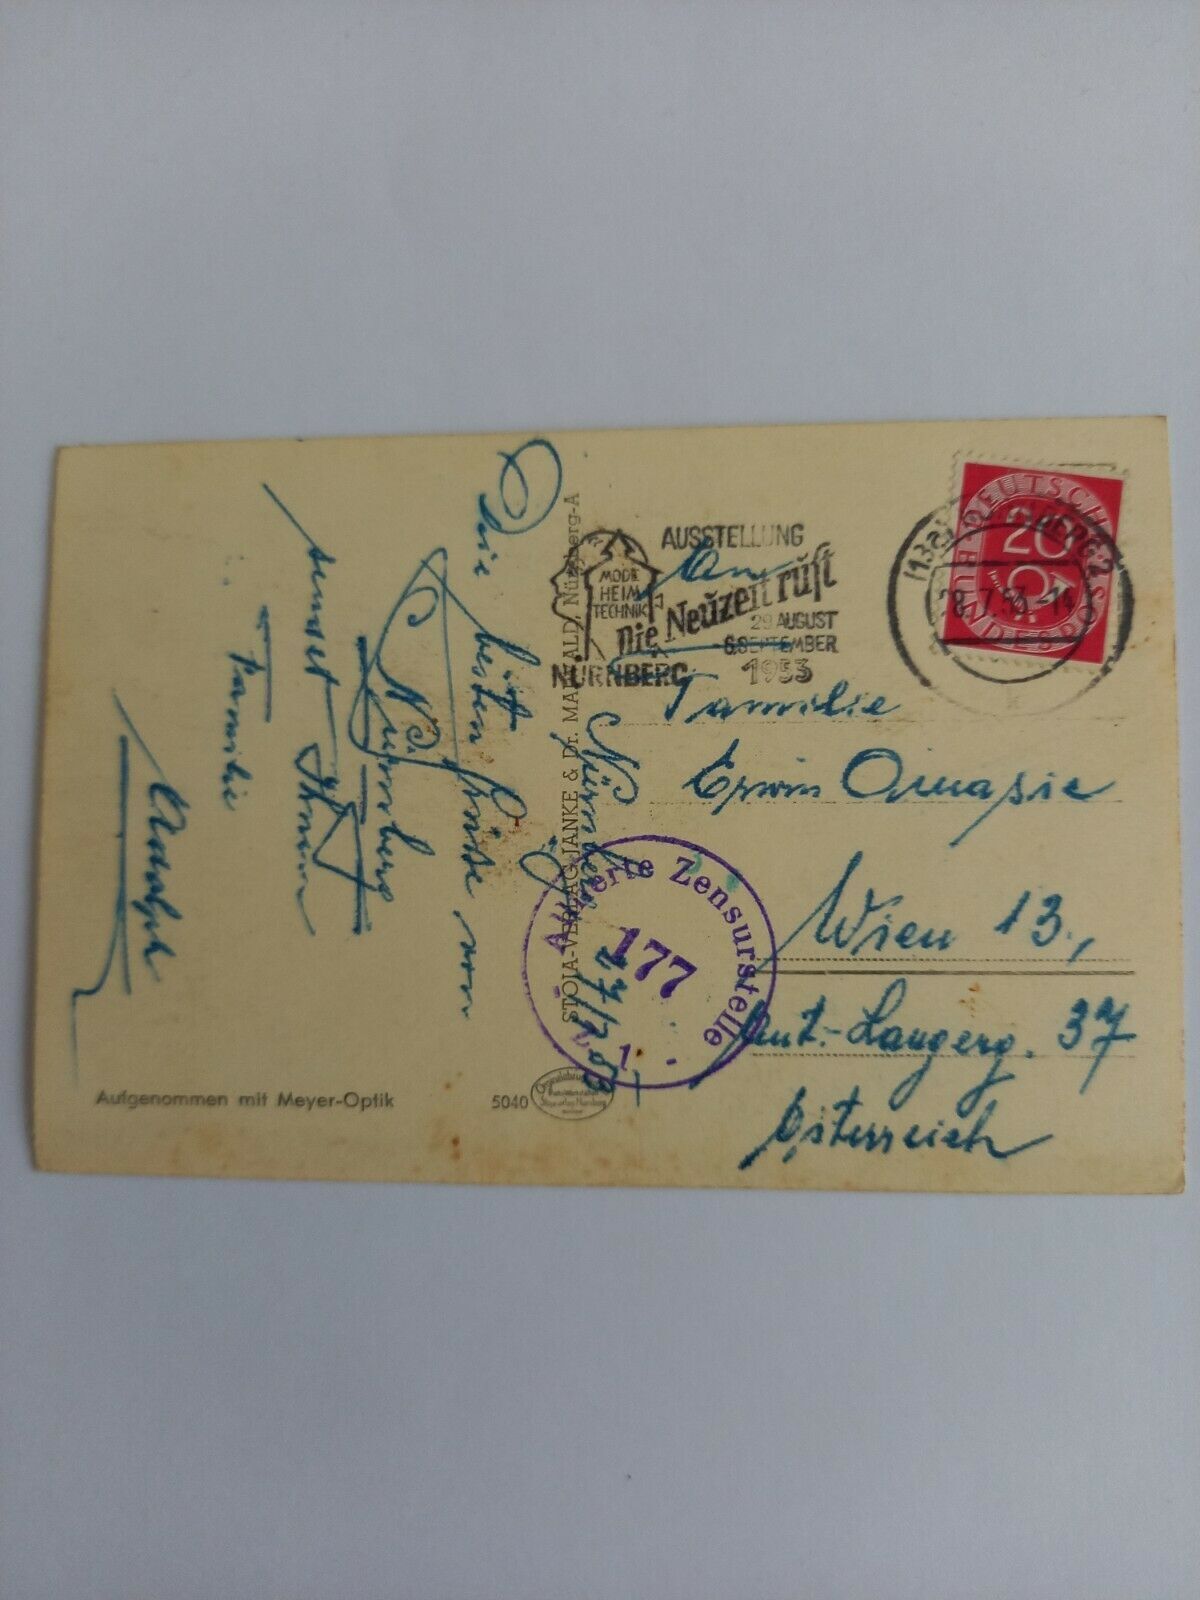 Nürnberg, 27/7 53
Die besten Grüße von
Nürnberg
sendet Ihnen
Familie
Aufgenommen mit Meyer-Optik
5040
STOJA-VERLAG JANKE & Dr. MAIWALD, Nürnberg-A
AUSSTELLUNG
MODE
HEIM
TECHNIK
Die Neuzeit ruft
29 AUGUST
6.SEPTEMBER
NÜRNBERG 1953
DEUTSCHE BUNDESPOST
20
28.7.53.-14
An
Familie
Erwin
Wien 13.,
Österreich
Alliierte Zensurstelle
177